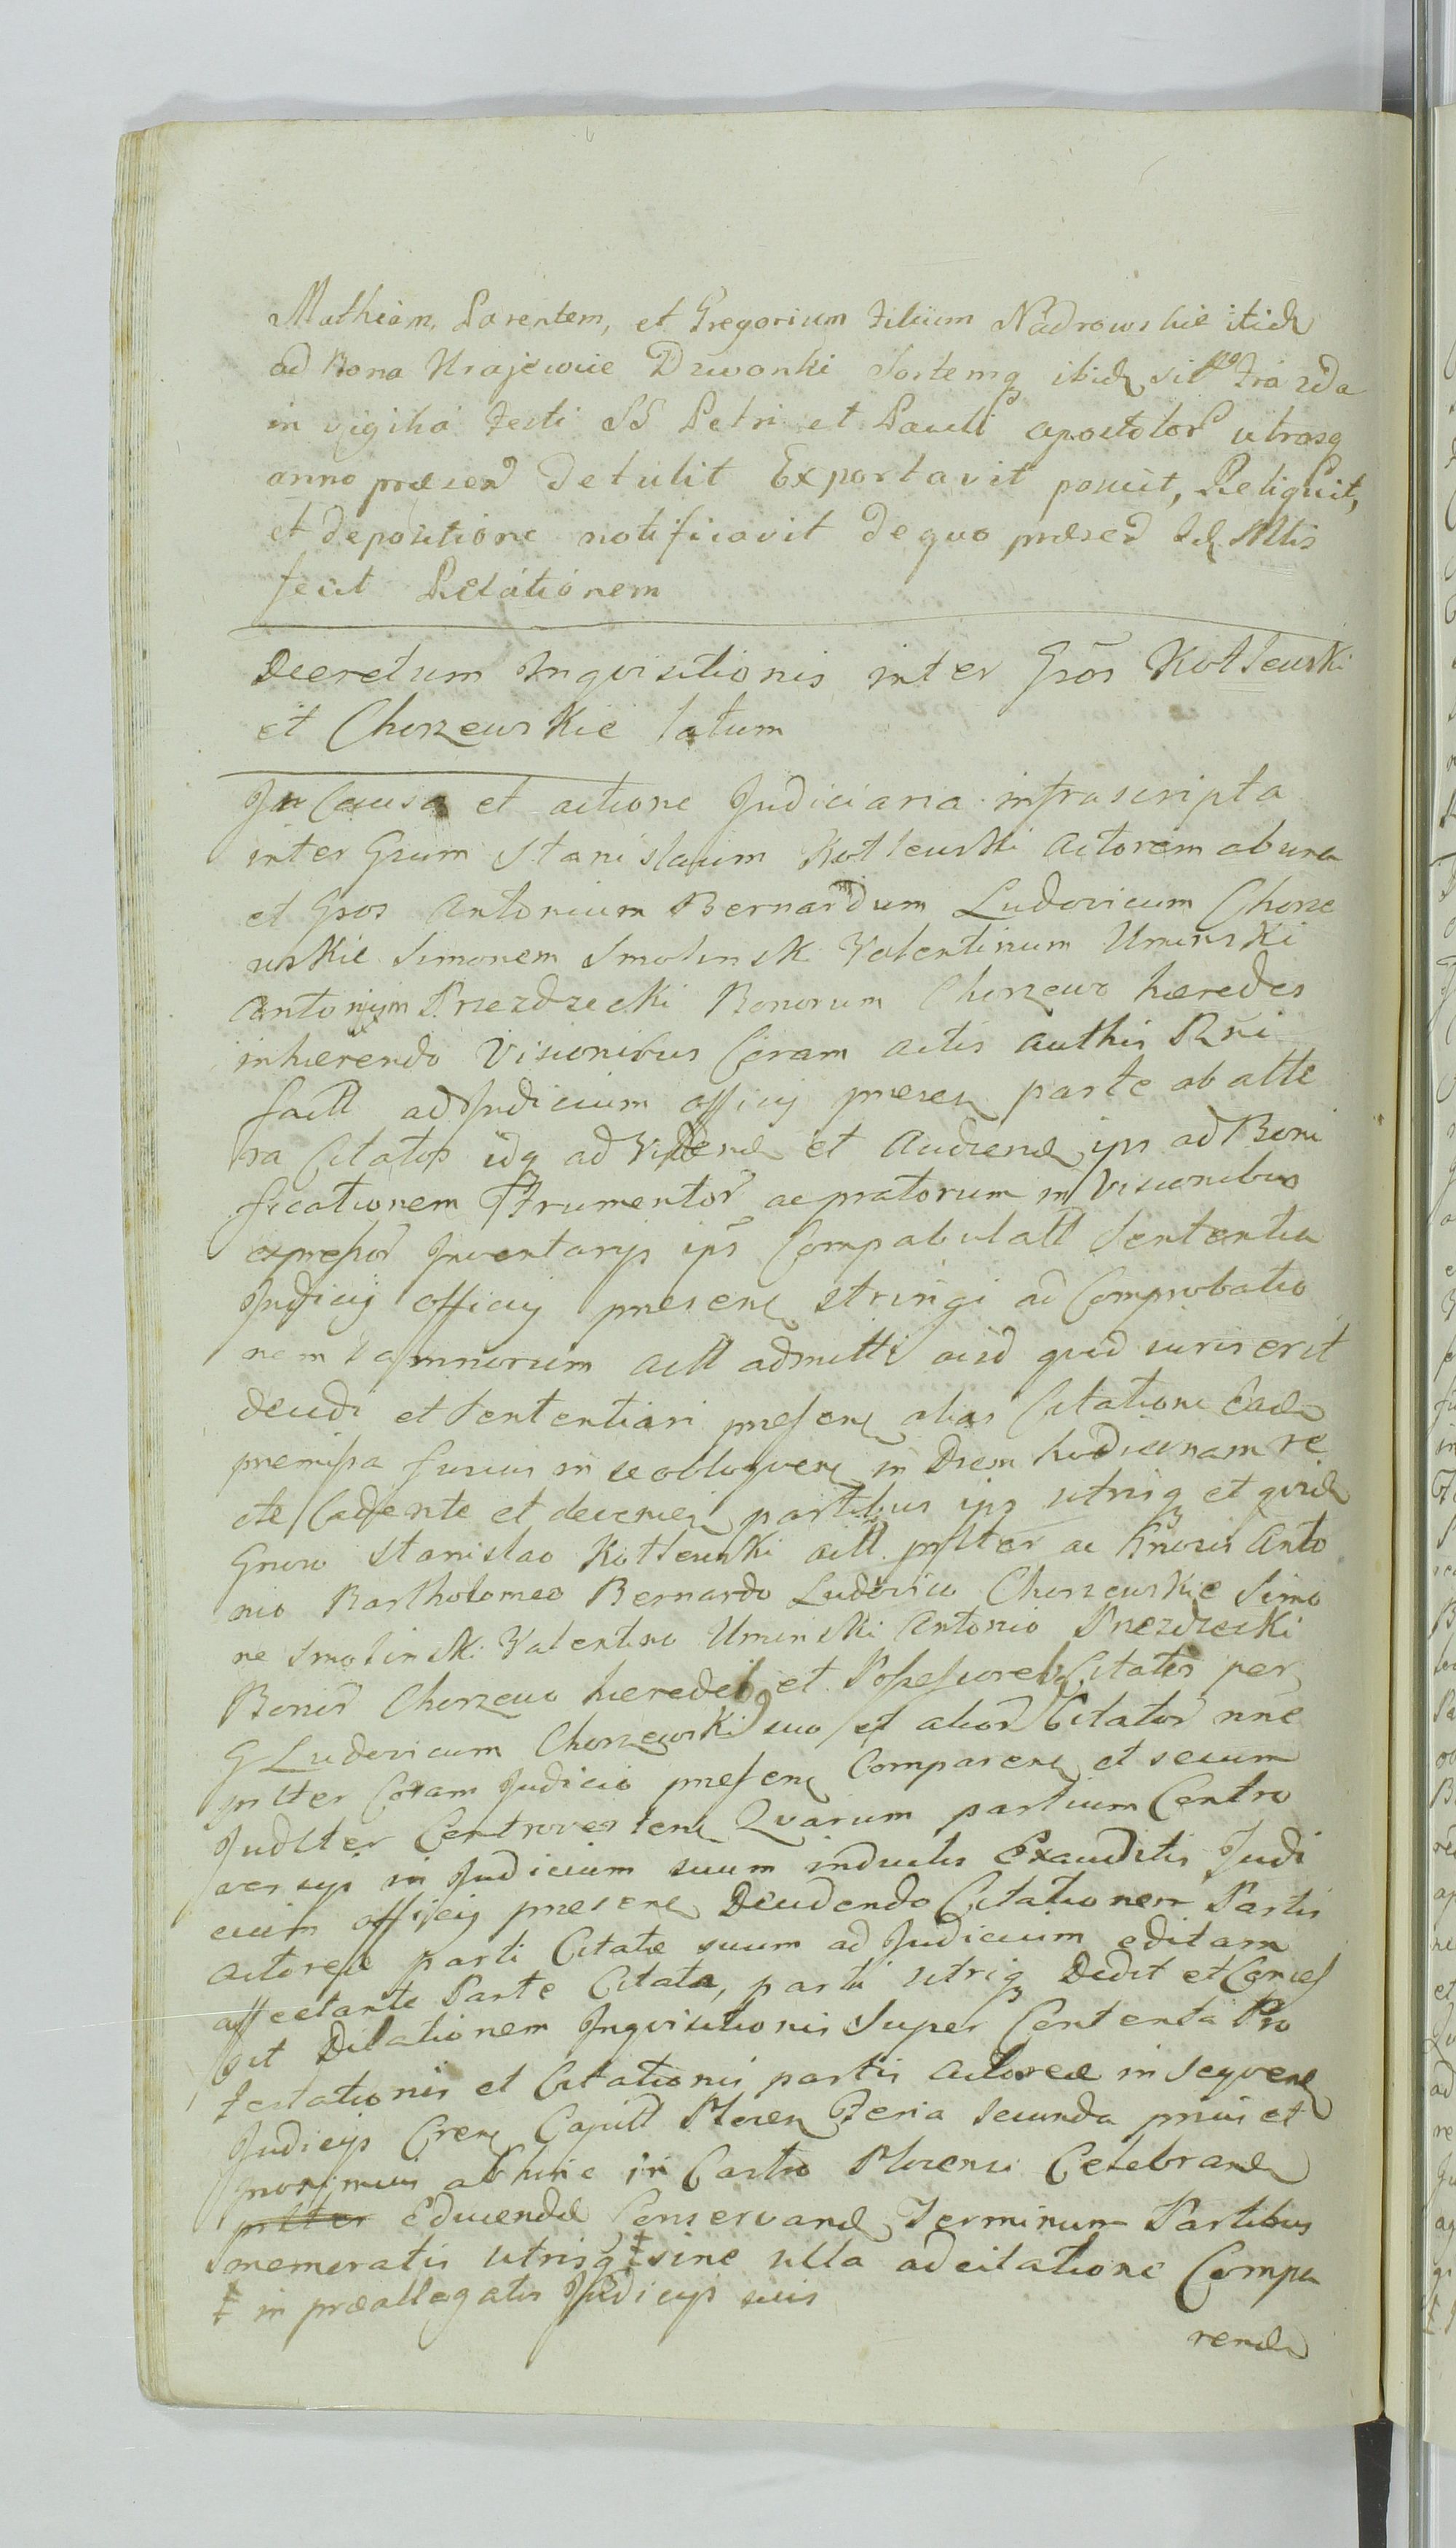 Mathiam, Parentem, et Gregorium Filium Nadrowskie itid
ad Bona Krajewie Dzwonki Sortemq ibid sit
in vigilia Festi SS Petri et Pauli apostolor utrasq
anno præsen Detulit Exportavit posuit, Reliquit,
et depositione notificavit de quo præsen
fecit Relationem
Decretum Inqvisitionis inter Gros Kotlewski
et Chorzewskie latum
In Causa et actione Judiciaria infrascripta
inter Grum Stanislaum Kotlewski Actorem ab una
et Gros Antonium Bernardum Ludovicum Chorze
wskie Simonem Smolinsk Valentinum Uminski
Antonium Przezdziecki Bonorum Chorzewo hæredes
inhærendo Visionibus Coram actis authis Rni
factt ad Judicium officij presen parte ab alte
ra Citatos idq ad Videnд et Audiend ips ad Boni
ficationem Frumentor ac pratorum in Visionibus
expressor Inventarijs ips Compabulatt Sententia
Judicij officij presene stringi ad Comprobatio
nem Damnorum actt admitti aisd quid iuris erit
decidi et Sententiari presene alias Citatione Ead
premissa fusius in se obloquene in Diem hodiernam re
cte Cadente et devenien partibus ips utrisq et quid
Gnoso Stanislao Kotlewski actt pnlter ac Gnosis Anto
nio Bartholomeo Bernardo Ludovico Chorzewskie Simo
ne Smolinsk Valentino Uminski Antonio Przezdziecki
Bonor Chorzewo hæredes et Possessores Citatis per
G Ludovicum Chorzewski suo et alior Citator nne
pnlter Coram Judicio presene Comparene et secum
Judlter Controvertene Qvarum partium Contro
versijs in Judicium suum inductis Exauditis Judi
cium officij presene Decidendo Citationem Partis
Actoreæ parti Citatæ suum ad Judicium editam
affectante Parte Citata, parti utriq Dedit et Conces
sit Dilationem Inqvisitionis Super Contenta Pro
testationis et Citationis partis Actoreæ in Seqvene
Judicijs Crene Capitt Ploсen Feria Secunda prius et
proximius abhinc in Castro Plocensi Celebrand
pnlter Educendæ Conservand Terminum Partibus
memoratis utrisq ‡ sine ulla adcitatione Compa
‡ in præallegatis Judicijs suis
rend